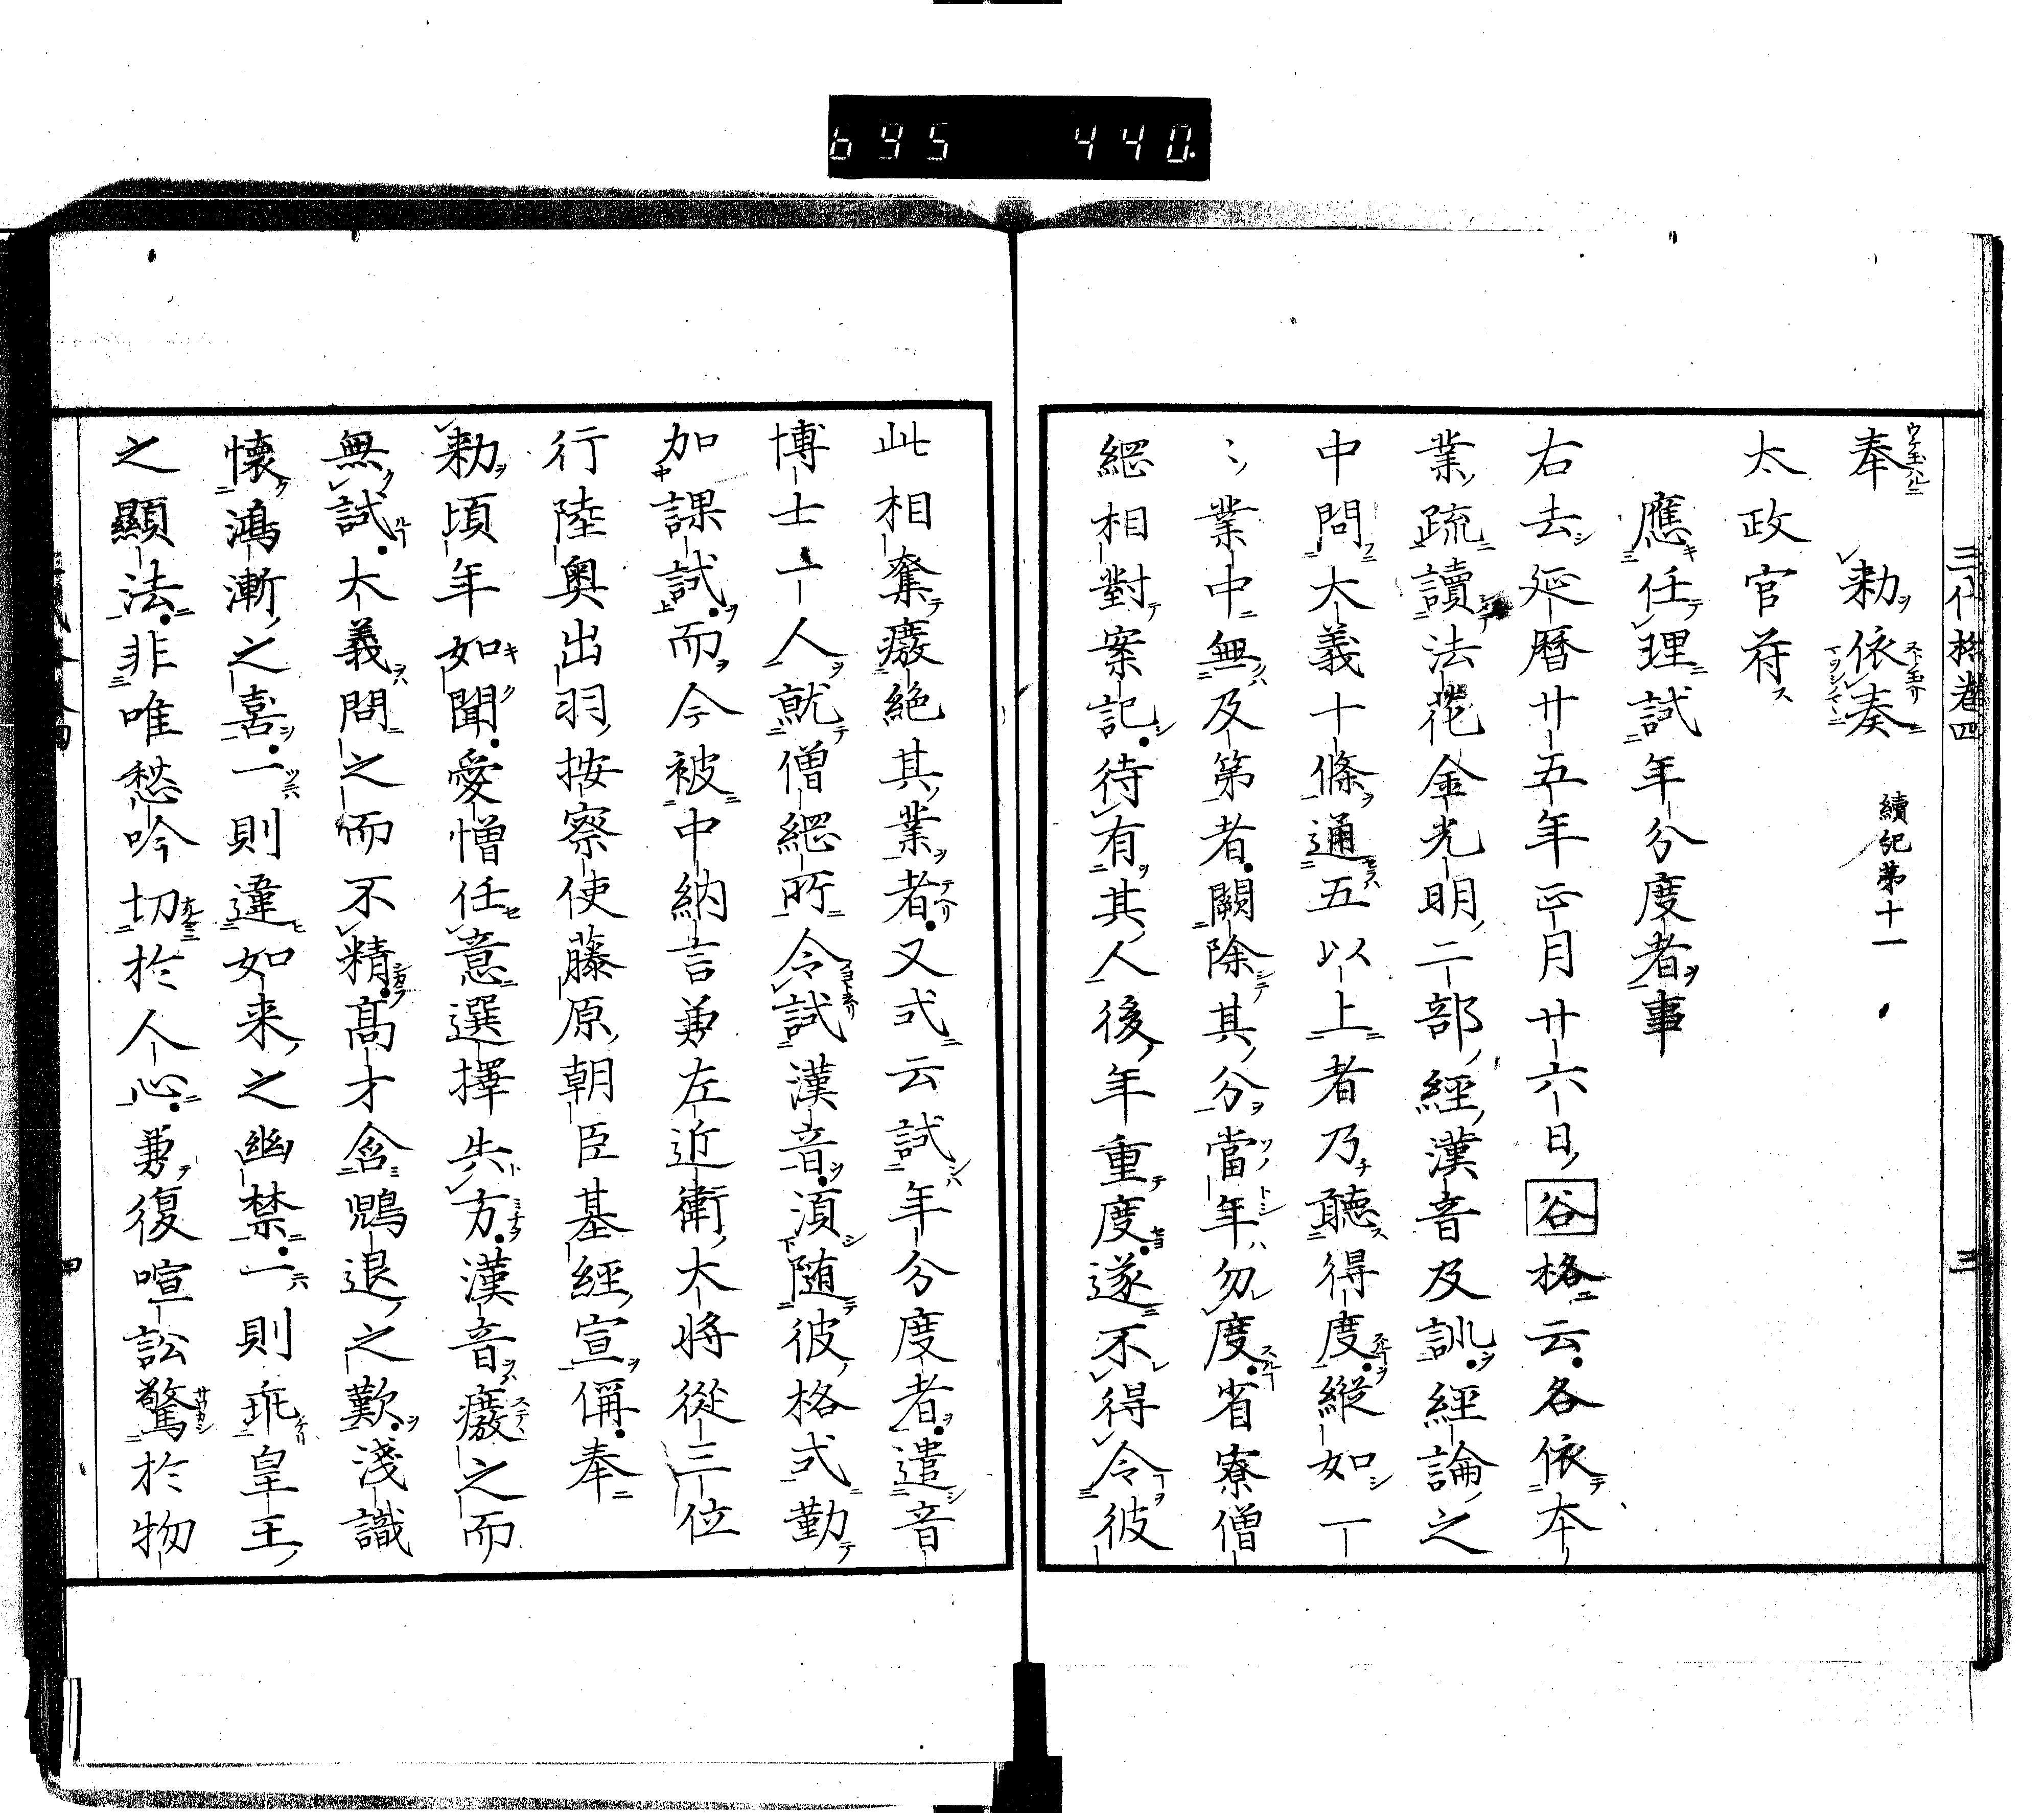 695 440.
三代格卷四
三
奉 勅依奏 續紀第十一
太政官符
應任理試年分度者事
右去延暦廿五年正月廿六日谷格云各依本
業疏讀法花金光明二部經漢音及訓經論之
中問大義十條通五以上者乃聽得度縱如一
〻業中無及第者闕除其分當年勿度省寮僧
綱相對案記待有其人後年重度遂不得令彼
此相奪癈絶其業者又式云試年分度者遣音
博士一人就僧綱所令試漢音須随彼格式勤
加課試而今被中納言兼左近衛大將從三位
行陸奥出羽按察使藤原朝臣基經宣偁奉
勅頃年如聞愛憎任意選擇失方漢音癈之而
無試大義問之而不精髙才含鷁退之歎淺識
懷鴻漸之喜一則違如来之幽禁一則乖皇王
之顯法非唯愁吟切於人心兼復喧訟驚於物
四